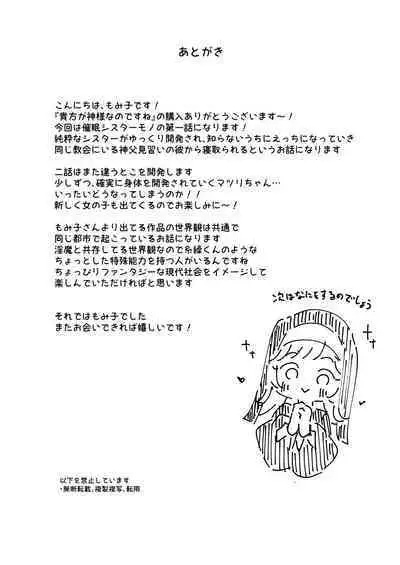 あとがき
こんにちは、もみ子です！
『貴方が神様なのですね』の購入ありがとうございます～！
今回は催眠シスターモノの第一話になります！
純粋なシスターがゆっくり開発され、知らないうちにえっちになっていき
同じ教会にいる神父見習いの彼から寝取られるというお話になります
二話はまた違うとこを開発します
少しずつ、確実に身体を開発されていくマツリちゃん…
いったいどうなってしまうのか！！
新しく女の子も出てくるのでお楽しみに～！
もみ子さんより出てる作品の世界観は共通で
同じ都市で起こっているお話になります
淫魔と共存してる世界観なので糸縁くんのような
ちょっとした特殊能力を持つ人がいるんですね
ちょっぴりファンタジーな現代社会をイメージして
楽しんでいただければと思います
次はなにをするのでしょう
それではもみ子でした
またお会いできれば嬉しいです！
以下を禁止しています
・無断転載、複製複写、転用